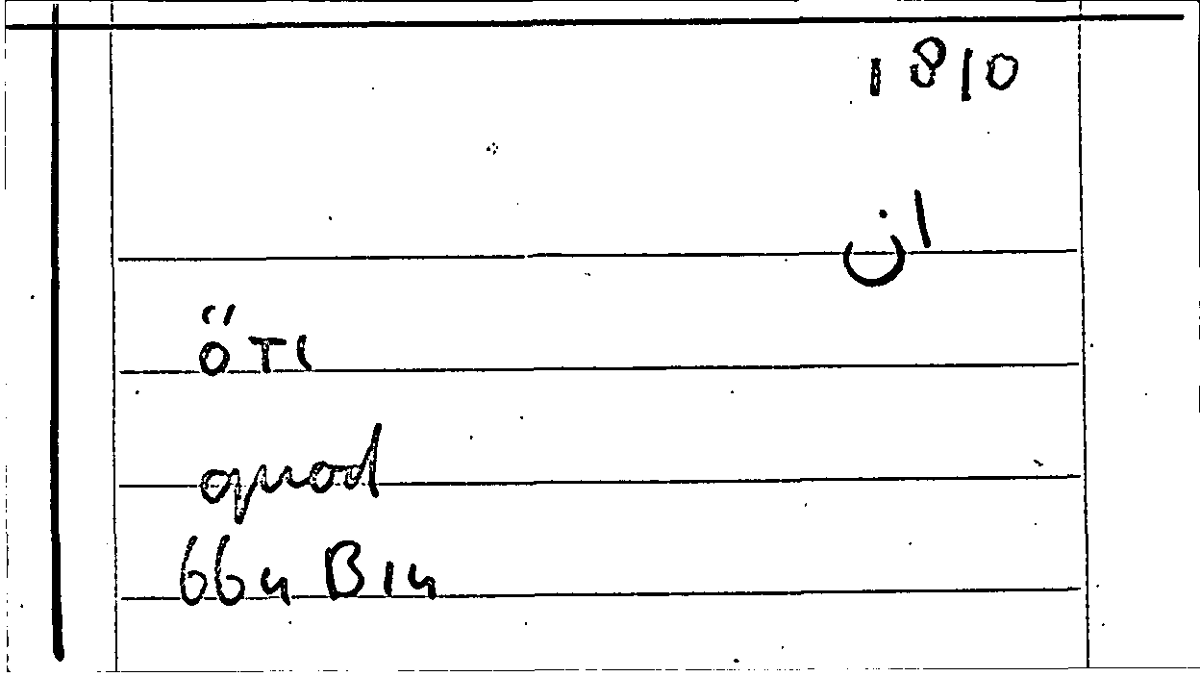 1810
ان
ὅτι
quod
66u B14